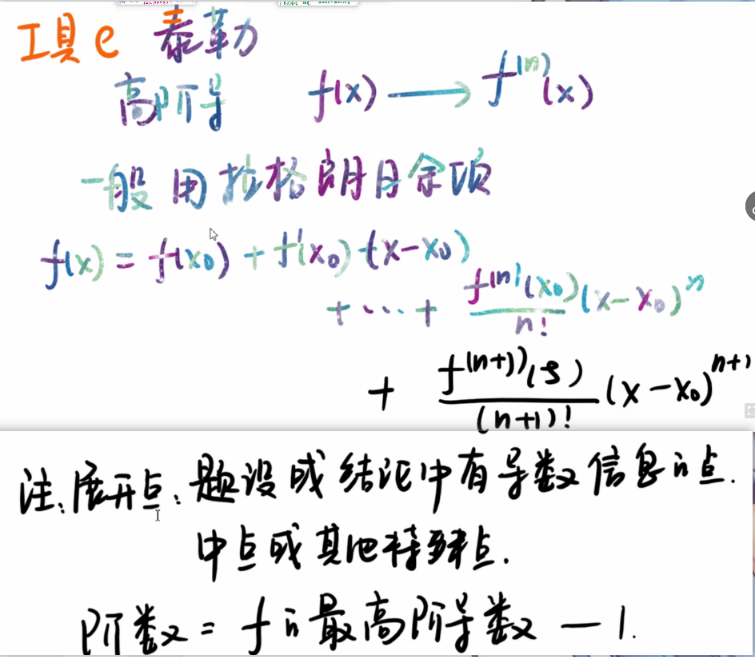 工具e 泰勒
高阶导 f(x) ⟶ f⁽ⁿ⁾(x)
一般用拉格朗日余项
f(x) = f(x₀) + f'(x₀)·(x-x₀)
+ ··· + f⁽ⁿ⁾(x₀)/n! (x-x₀)ⁿ
+ f⁽ⁿ⁺¹⁾(ξ)/(n+1)! (x-x₀)ⁿ⁺¹
注:展开点:题设或结论中有导数信息的点.
中点或其他特殊点.
阶数 = f的最高阶导数 - 1.